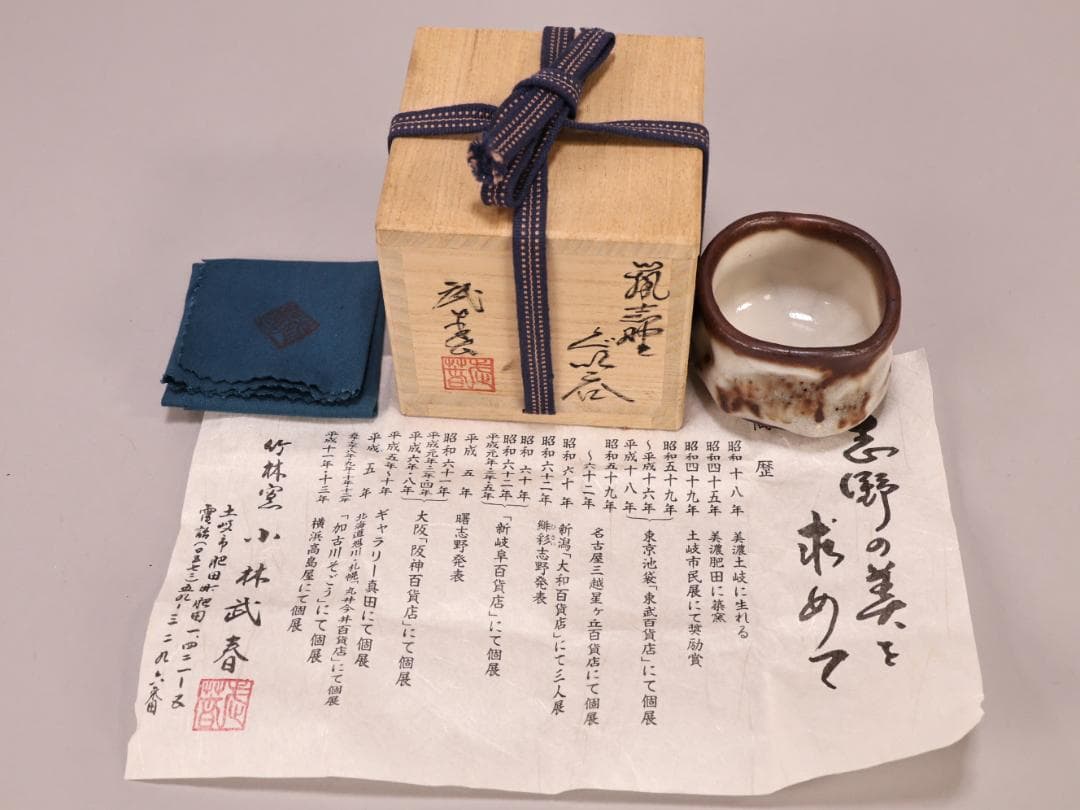 鼠志野
ぐい呑
武春
志野の美を
求めて
歴
昭和十八年 美濃土岐に生れる
昭和四十五年 美濃肥田に築窯
昭和四十九年 土岐市民展にて奨励賞
昭和五十九年
～平成十六年
平成十八年 東京池袋「東武百貨店」にて個展
昭和五十九年
～六十二年 名古屋三越星ヶ丘百貨店にて個展
昭和六十年 新潟「大和百貨店」にて三人展
昭和六十二年 緋彩志野発表
昭和六十年
昭和六十二年
平成元年・二年・五年 「新岐阜百貨店」にて個展
平成五年 曙志野発表
昭和六十一年
平成元年・二年・四年
平成六年・八年 大阪「阪神百貨店」にて個展
平成五年～十年 ギャラリー真田にて個展
平成五年 北海道旭川・札幌「丸井今井百貨店」にて個展
平成八年九年十年十二年 「加古川そごう」にて個展
平成十一年・十三年 横浜高島屋にて個展
竹林窯 小林武春
土岐市肥田町肥田一、四二一ー五
電話(〇五七二)五九ー三二九六番